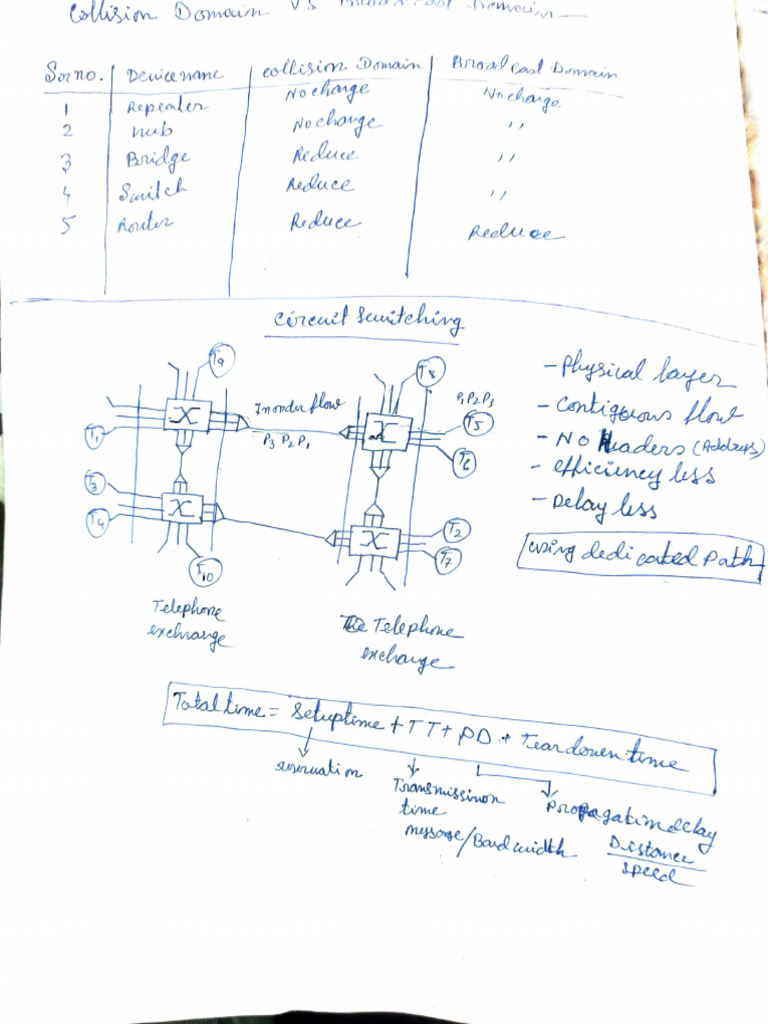 Collision Domain VS Broad cast Domain
Sr no. Device name Collision Domain Broad cast Domain
1 Repeater No change No change
2 Hub No change ,,
3 Bridge Reduce ,,
4 Switch Reduce ,,
5 Router Reduce Reduce
Circuit Switching
T9
T8
In order flow
P3 P2 P1
P1 P2 P3
T1
T5
T6
T3
T4
T2
T7
T10
Telephone
exchange
Telephone
exchange
- Physical layer
- Contiguous flow
- No Headers (Address)
- efficiency less
- Delay less
using dedicated path
Total time = Setup time + TT + PD + Tear down time
reservation
Transmission
time
message/Bandwidth
Propagation delay
Distance
speed